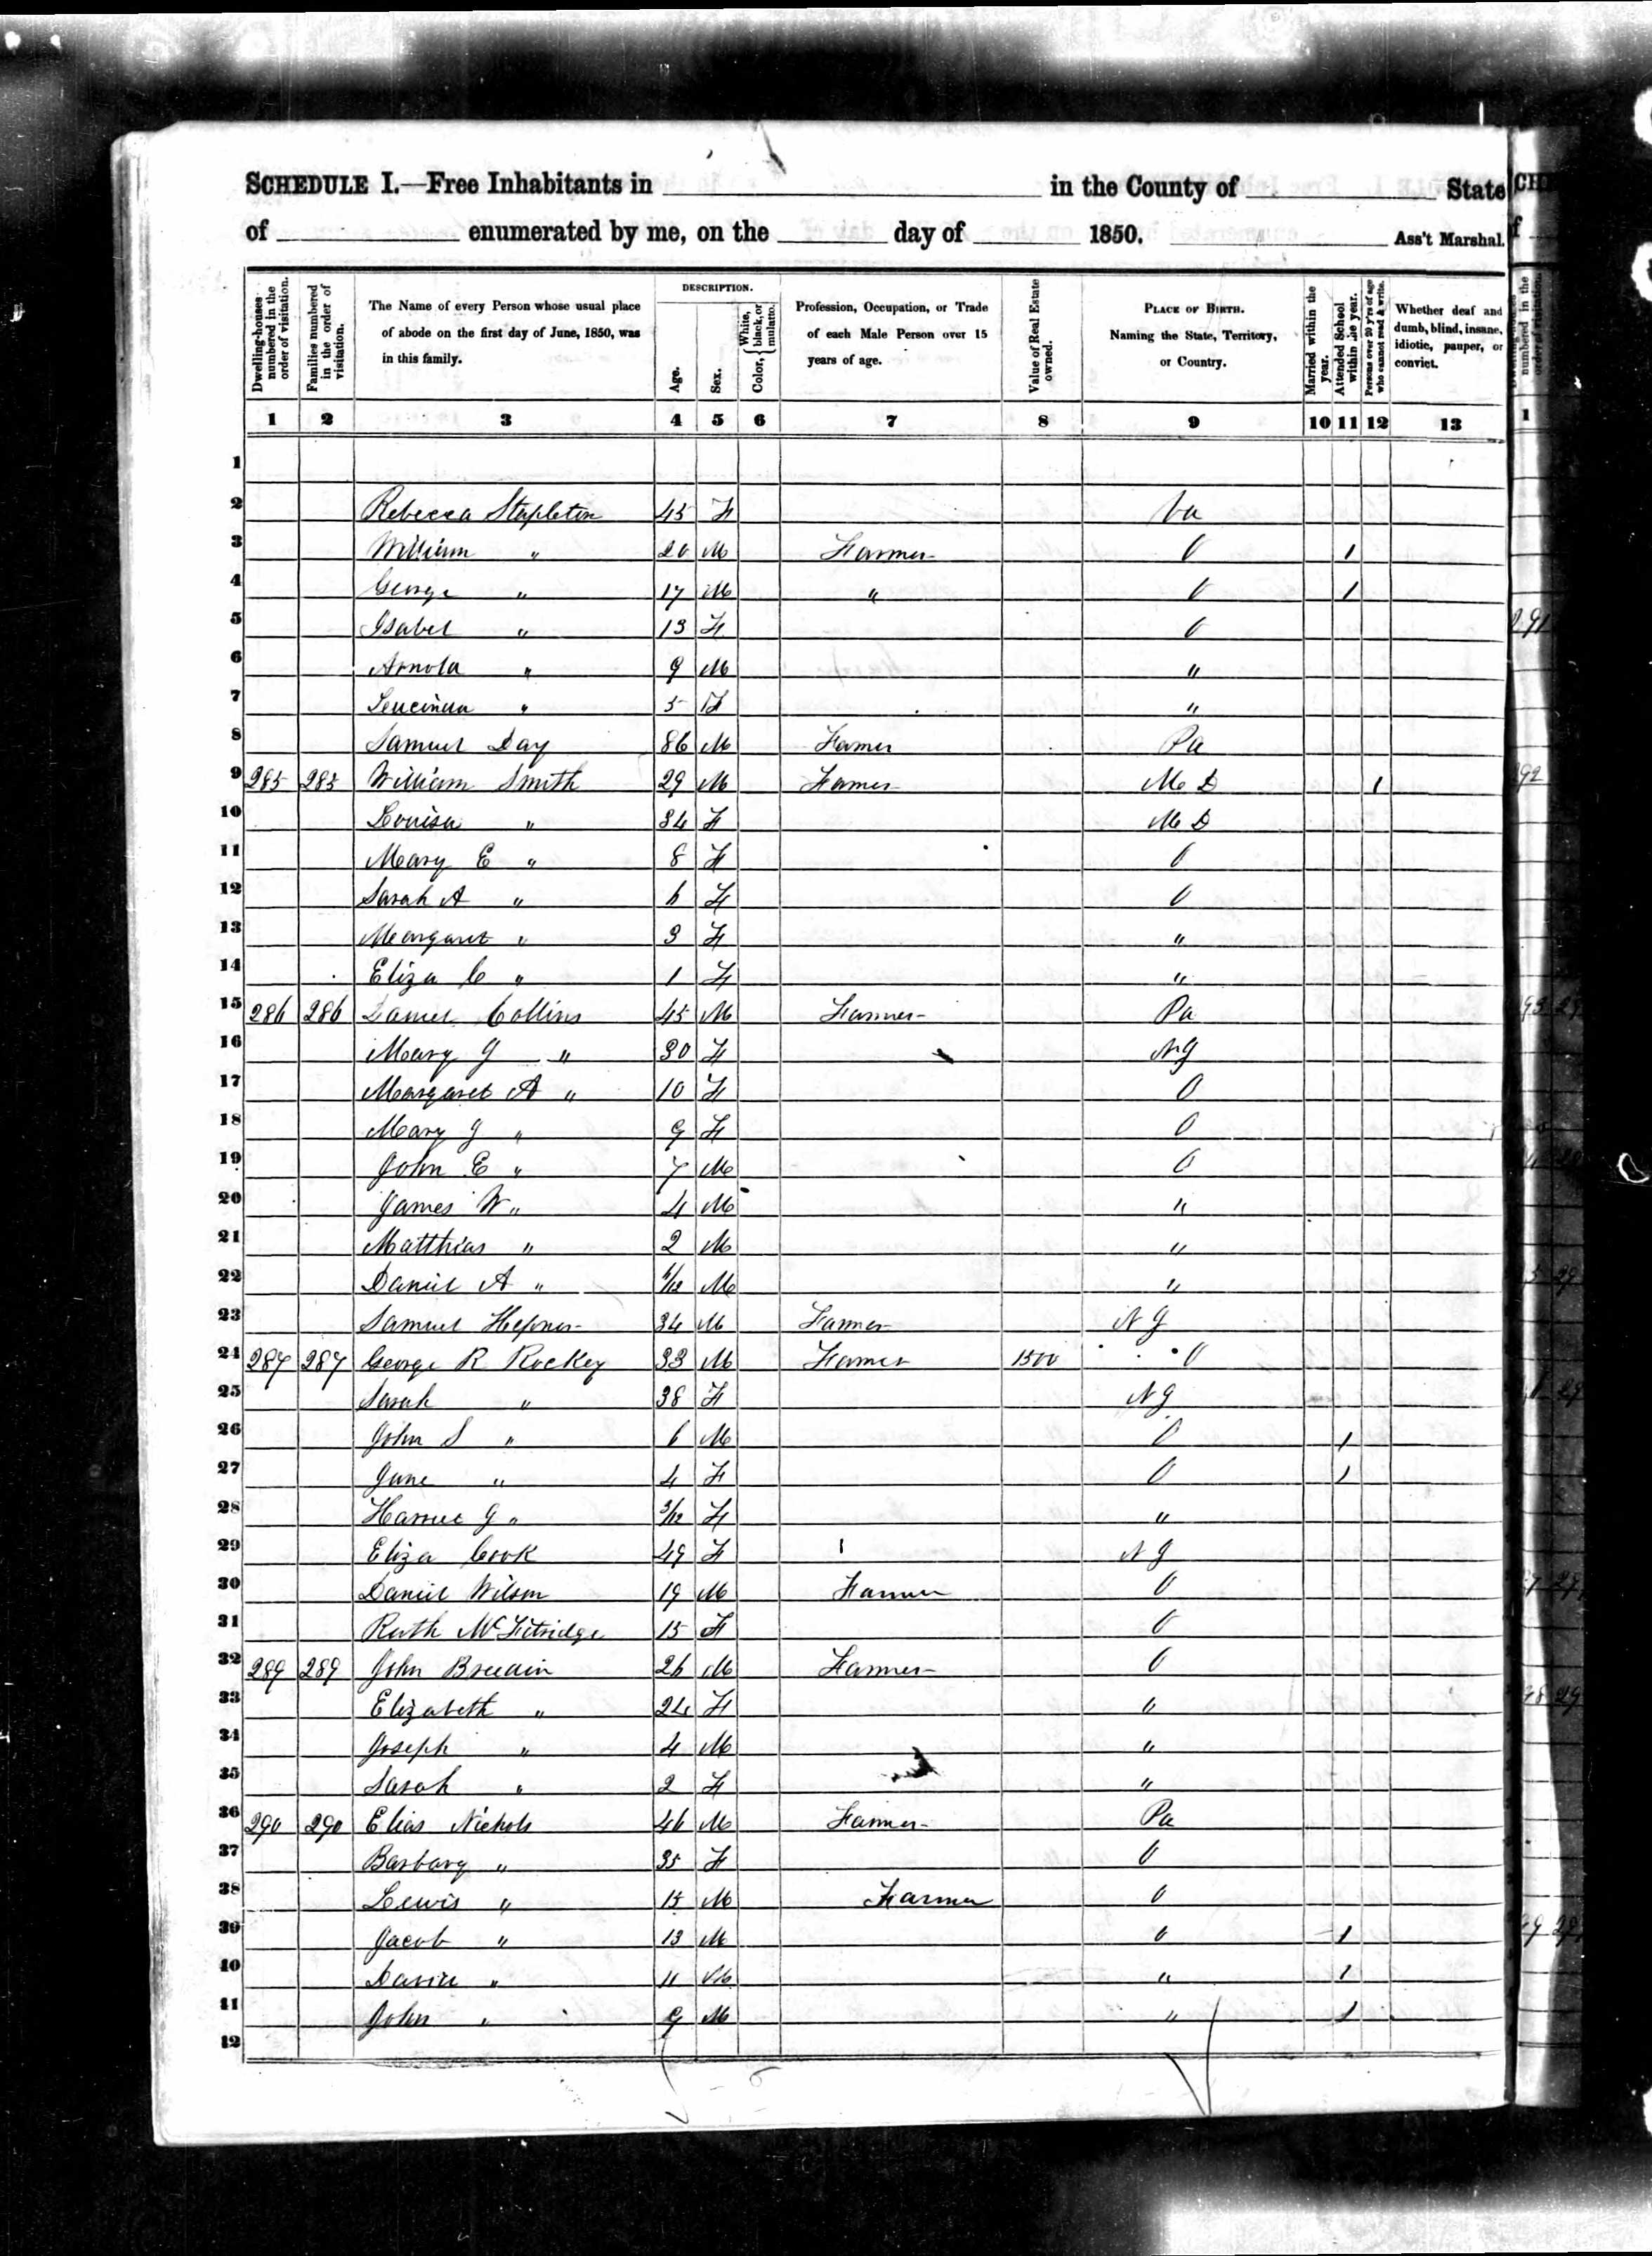 SCHEDULE I.—Free Inhabitants in in the County of State
of enumerated by me, on the day of 1850. Ass't Marshal.
Dwelling-houses numbered in the order of visitation.
Families numbered in the order of visitation.
The Name of every Person whose usual place of abode on the first day of June, 1850, was in this family.
DESCRIPTION.
Age.
Sex.
Color, { White, black, or mulatto.
Profession, Occupation, or Trade of each Male Person over 15 years of age.
Value of Real Estate owned.
PLACE OF BIRTH. Naming the State, Territory, or Country.
Married within the year.
Attended School within the year.
Persons over 20 y'rs of age who cannot read & write.
Whether deaf and dumb, blind, insane, idiotic, pauper, or convict.
1 2 3 4 5 6 7 8 9 10 11 12 13
1
2 Rebecca Stapleton 45 F Va
3 William " 20 M Farmer O 1
4 George " 17 M " O 1
5 Isabel " 13 F O
6 Arnold " 9 M "
7 " 5 F "
8 Samuel Day 86 M Farmer Pa
9 285 285 William Smith 29 M Farmer M D 1
10 Louisa " 34 F M D
11 Mary E " 8 F O
12 Sarah A " 6 F O
13 Margaret " 3 F "
14 Eliza C " 1 F "
15 286 286 Daniel Collins 45 M Farmer Pa
16 Mary J " 30 F N J
17 Margaret A " 10 F O
18 Mary J " 9 F O
19 John E " 7 M O
20 James W " 4 M "
21 Matthias " 2 M "
22 Daniel A " /12 M "
23 Samuel Hepner 34 M Farmer N J
24 287 287 George R Rockey 33 M Farmer 1500 O
25 Sarah " 38 F N J
26 John S " 6 M O 1
27 Jane " 4 F O 1
28 Harriet J " 3/12 F "
29 Eliza Cook 49 F N J
30 Daniel Wilson 19 M Farmer O
31 Ruth McFitridge 15 F O
32 289 289 John Breedin 26 M Farmer O
33 Elizabeth " 24 F "
34 Joseph " 4 M "
35 Sarah " 2 F "
36 290 290 Elias Nichols 46 M Farmer Pa
37 Barbary " 35 F O
38 Lewis " 15 M Farmer O
39 Jacob " 13 M O 1
40 David " 11 M " 1
41 John " 9 M " 1
42